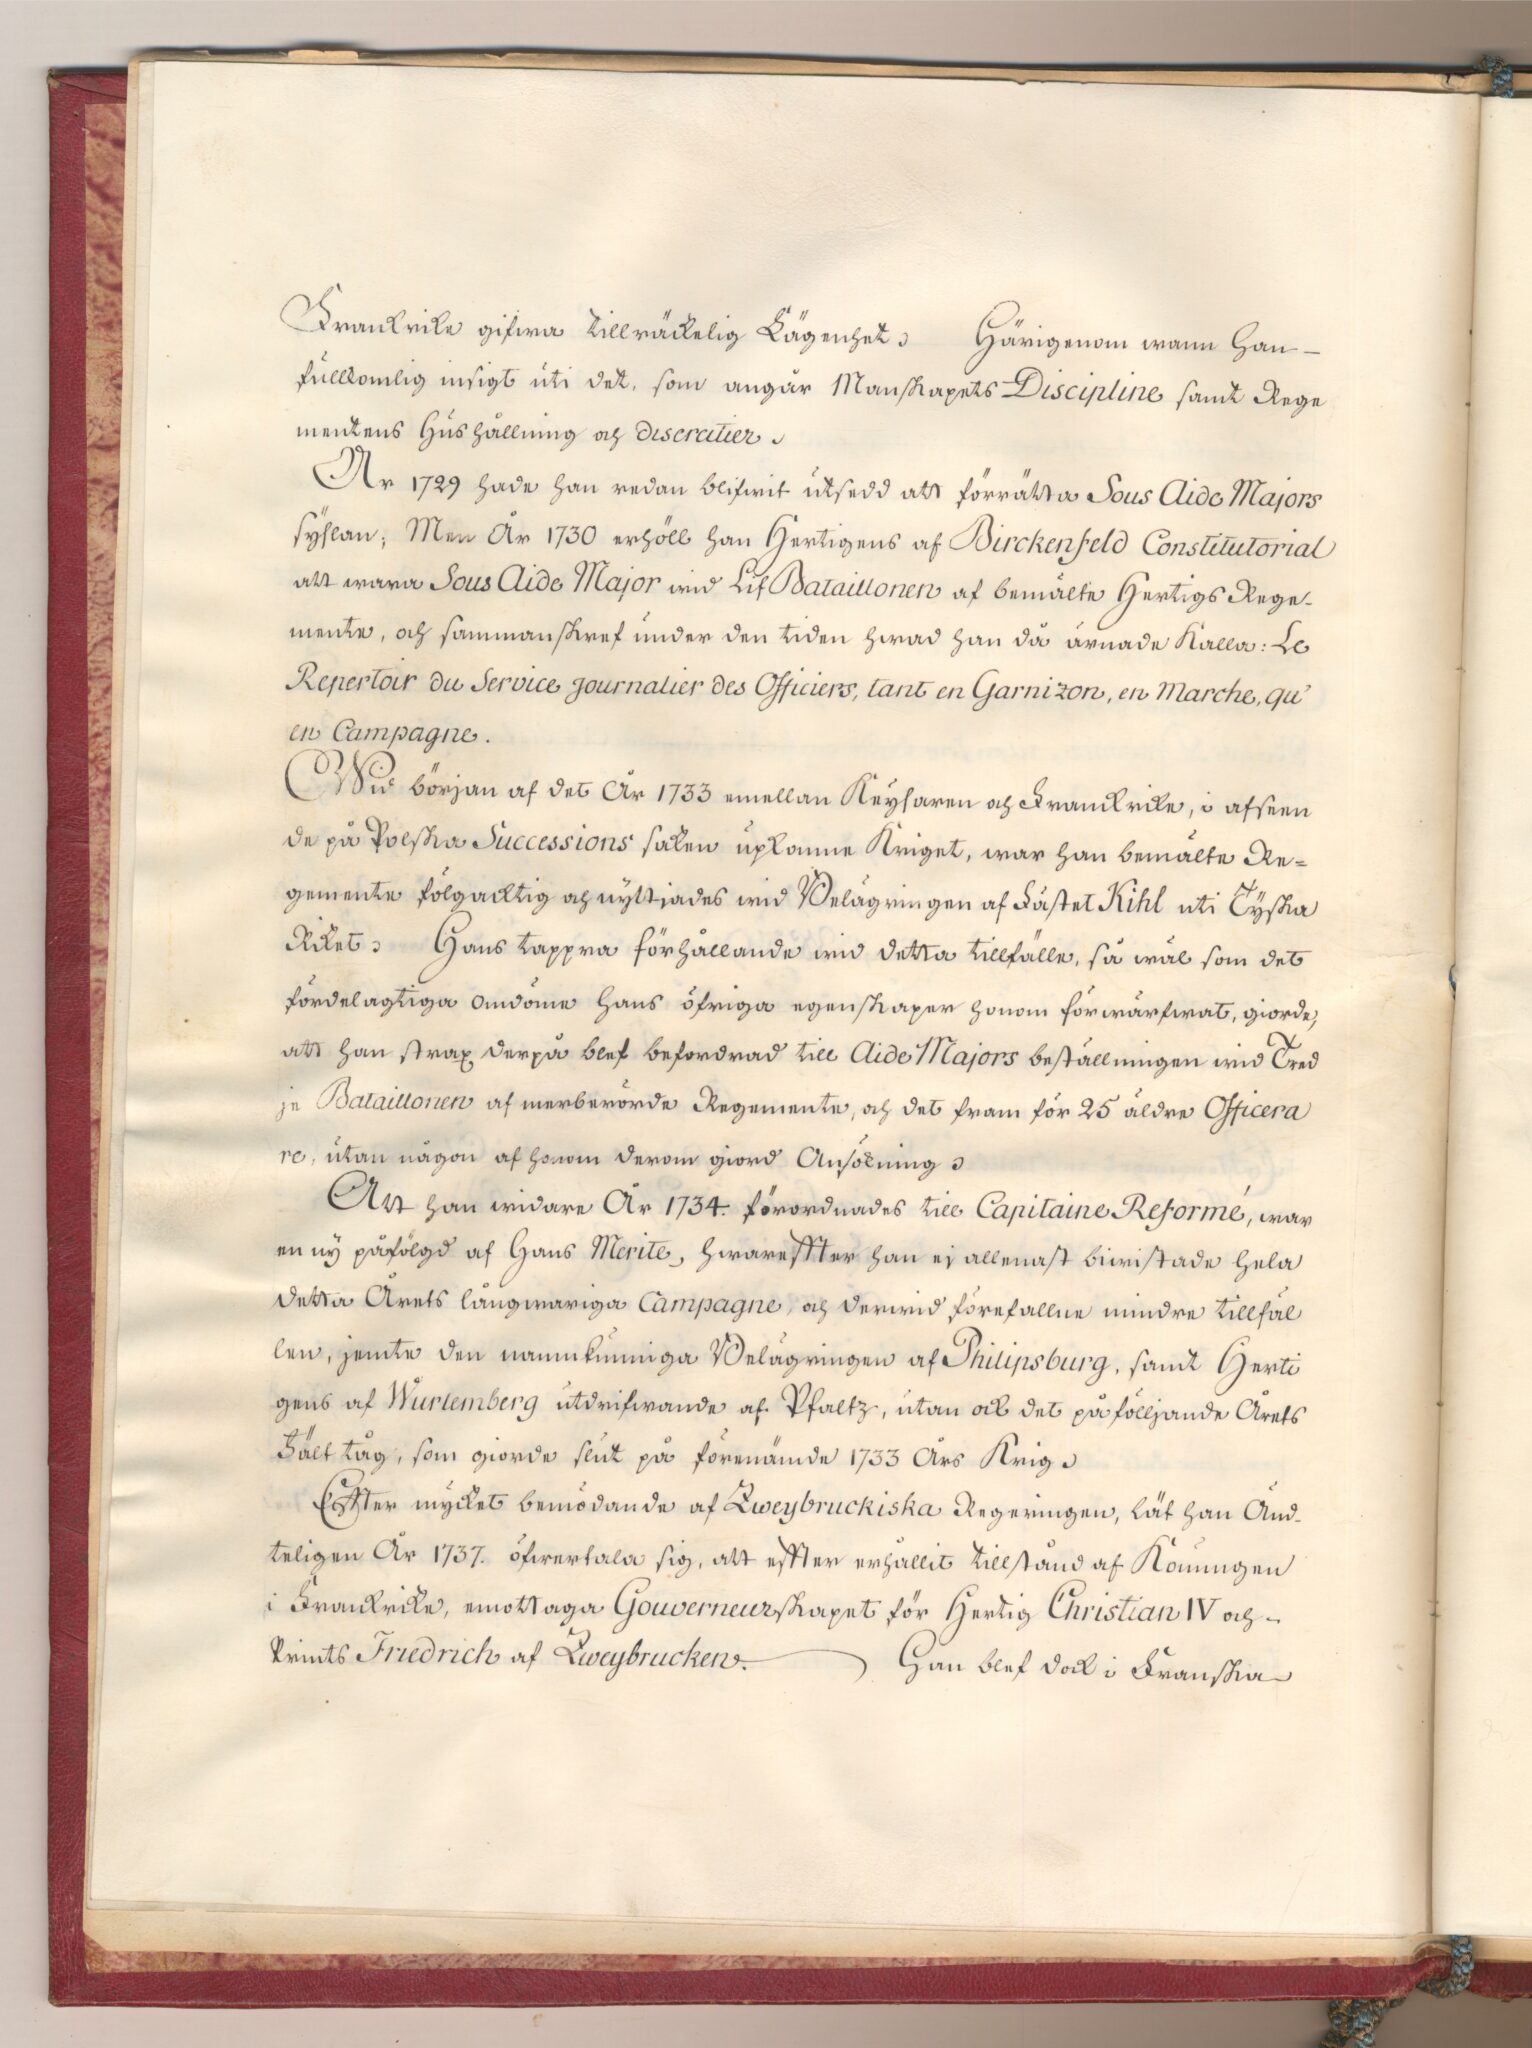 Franckrike gifwa tillräckelig Lägenhet. Härigenom wann Han
fullkomlig insigt uti det, som angår Manskapets Discipline samt Rege
mentens Hushållning och discretier.
År 1729 hade han redan blifwit utsedd att förrätta Sous Aide Majors
syslan; Men År 1730 erhöll han Hertigens af Birckenfeld Constitutorial
att wara Sous Aide Major wid Lif Bataillonen af bemälte Hertigs Rege-
mente, och sammanskref under den tiden hwad han då ärnade Kalla: Le
Repertoir du Service journalier des Officiers, tant en Garnizon, en Marche, qu'
en Campagne.
Wid början af det År 1733 emellan Keysaren och Franckrike, i afseen
de på Polska Successions saken upkomne Kriget, war han bemälte Re=
gemente fölgacktig och nyttjades wid Belägringen af Fästet Kihl uti Tyska
Riket. Hans tappra förhållande wid detta tillfälle, så wäl som det
fördelagtiga omdöme hans öfriga egenskaper honom förwärfwat, giorde,
att han strax derpå blef befordrad till Aide Majors beställningen wid Tred
je Bataillonen af merberörde Regemente, och det fram för 25 äldre Officera
re, utan någon af honom derom giord Ansökning.
Att han widare År 1734. förordnades till Capitaine Reformé, war
en ny påfölgd af Hans Merite, hwareffter han ej allenast biwistade hela
detta Årets långwariga Campagne, och derwid förefallne mindre tillfäl
len, jemte den namnkunniga Belägringen af Philipsburg, samt Herti
gens af Wurtemberg utdrifwande af Pfaltz, utan ock det påfölljande Årets
Fält tåg, som giorde slut på förenämde 1733 Års Krig.
Effter mycket bemödande af Zweybruckiska Regeringen, lät han Änd-
teligen År 1737. öfwertala sig, att effter erhållit tillstånd af Konungen
i Franckrike, emottaga Gouverneurskapet för Hertig Christian IV och
Prints Friedrich af Zweybrucken. Han blef dock i Franska